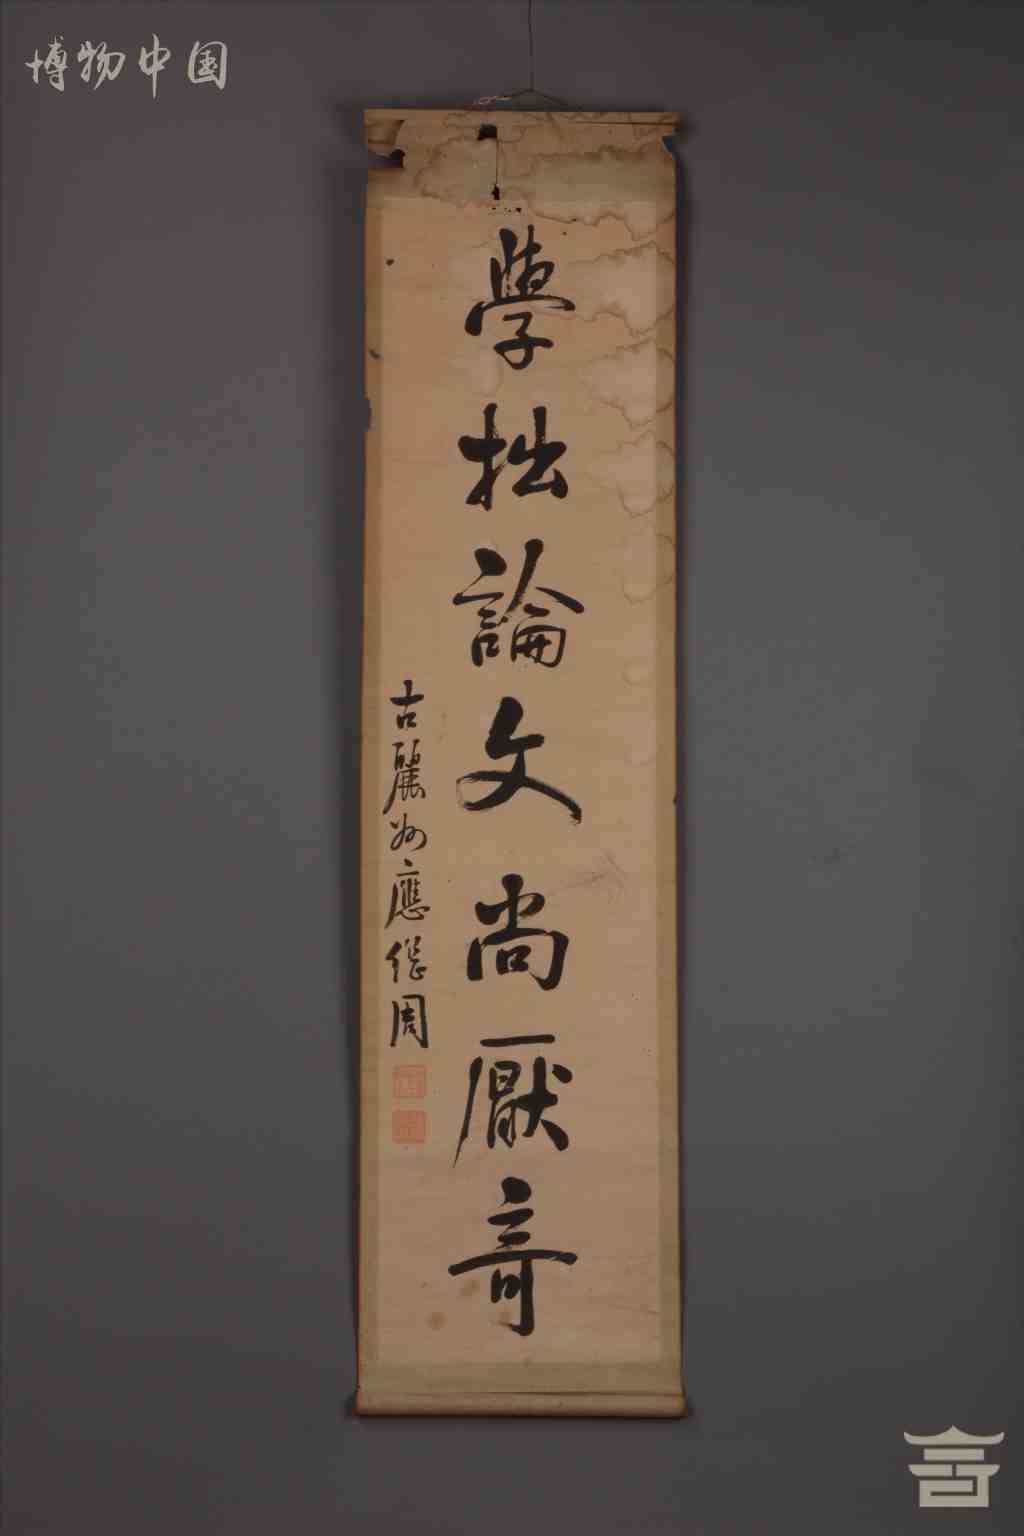 博物中国
學拙論文尚厭奇
古麗州應從周